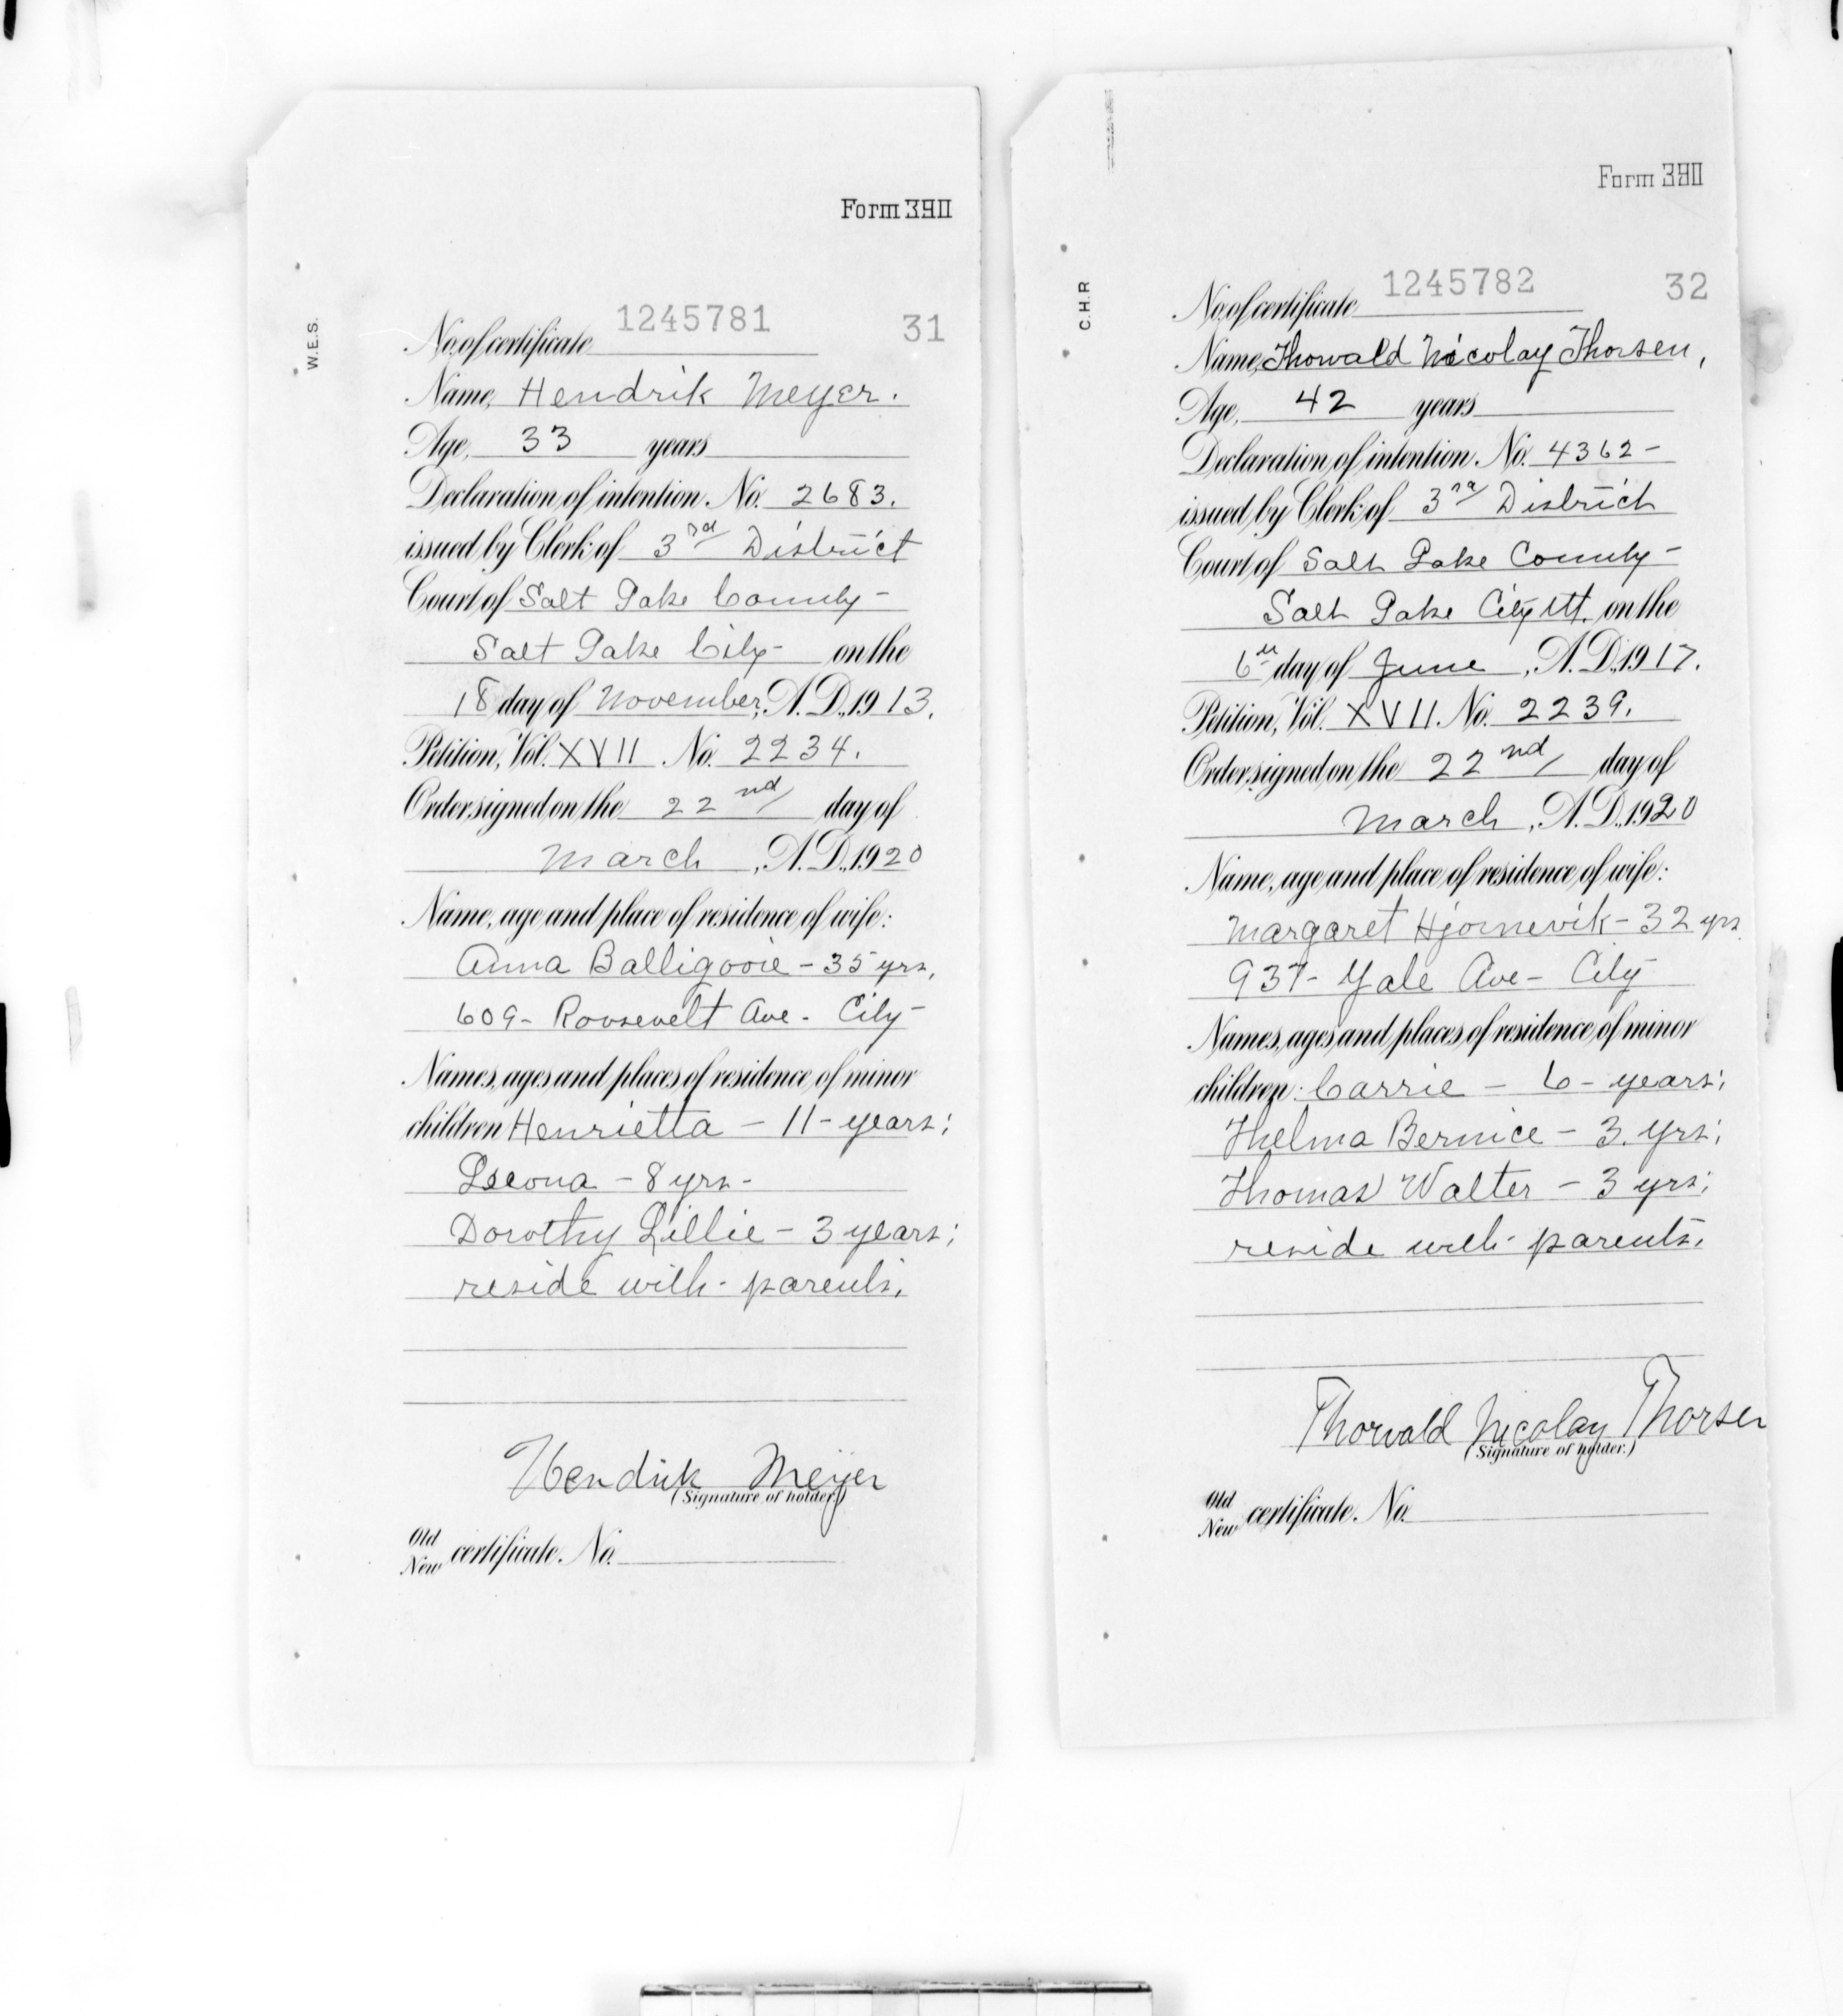 Form 390
W.E.S.
1245781 31
No. of certificate
Name, Hendrik Meyer.
Age, 33 years
Declaration of intention No. 2683.
issued by Clerk of 3rd District
Court of Salt Lake County-
Salt Lake City- on the
18 day of November, A.D., 1913.
Petition, Vol. XVII No. 2234.
Order signed on the 22nd day of
March, A.D., 1920
Name, age and place of residence of wife:
Anna Balligooie - 35 yrs,
609- Roosevelt Ave. City-
Names, ages and places of residence of minor
children Henrietta - 11- years;
Leeona - 8 yrs-
Dorothy Lillie - 3 years;
reside with- parents.
Hendrik Meijer
(Signature of holder.)
Old
New certificate. No.
Form 390
C.H.R
1245782 32
No. of certificate
Name, Thowald Nicolay Thorsen,
Age, 42 years
Declaration of intention No. 4362-
issued by Clerk of 3rd District
Court of Salt Lake County-
Salt Lake City Ut. on the
6th day of June, A.D., 1917.
Petition, Vol. XVII. No. 2239.
Order signed on the 22nd day of
March, A.D., 1920
Name, age and place of residence of wife:
Margaret Hjornevik - 32 yrs
937- Yale Ave- City
Names, ages and places of residence of minor
children: Carrie - 6- years;
Thelma Bernice - 3. yrs;
Thomas Walter - 3 yrs;
reside with- parents.
Thorvald Nicolay Thorsen
(Signature of holder.)
Old
New certificate. No.